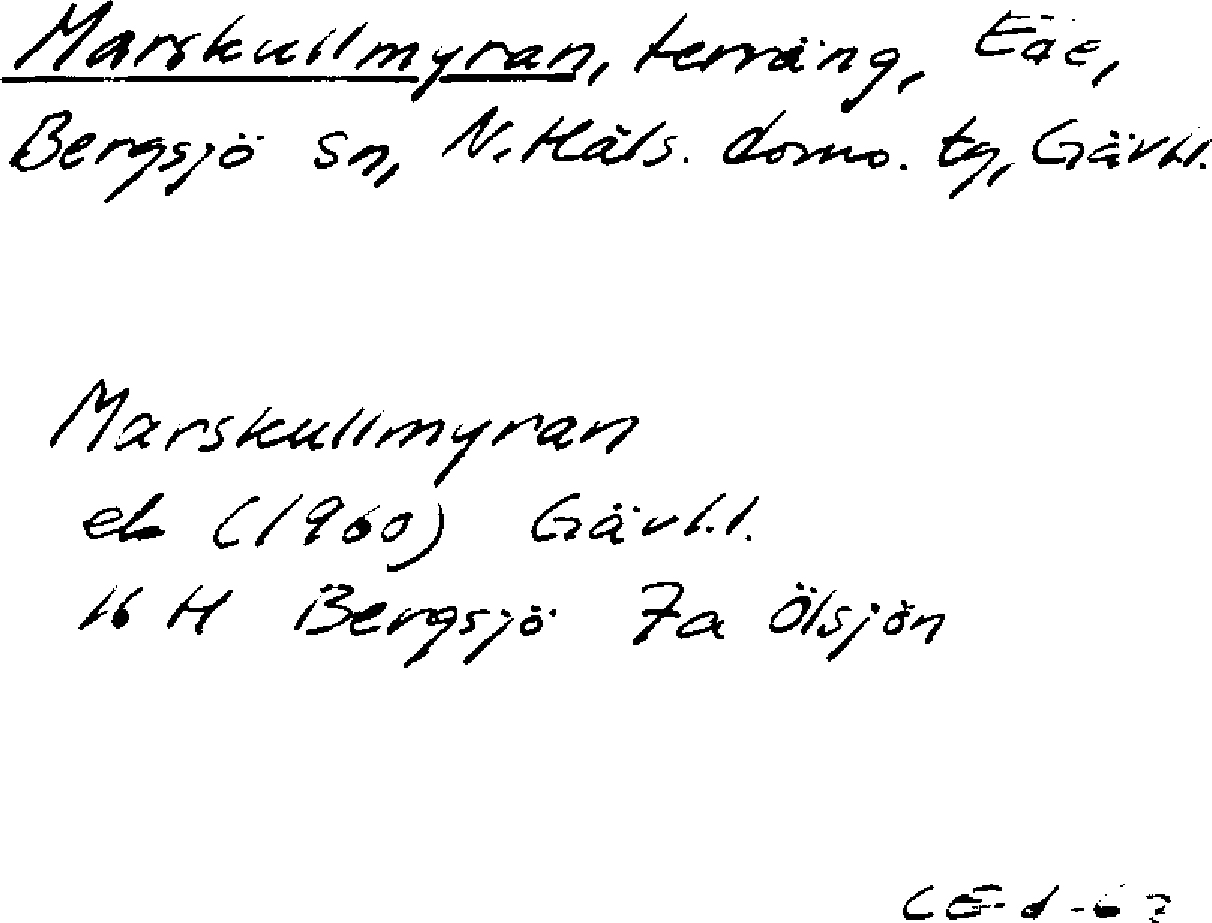 Marskullmyran, terräng, Eäe,
Bergsjö sn, N. Häls. doms. tg, Gävl.l.
Marskullmyran
ek (1960) Gävl.l.
16 H Bergsjö 7a Ölsjön